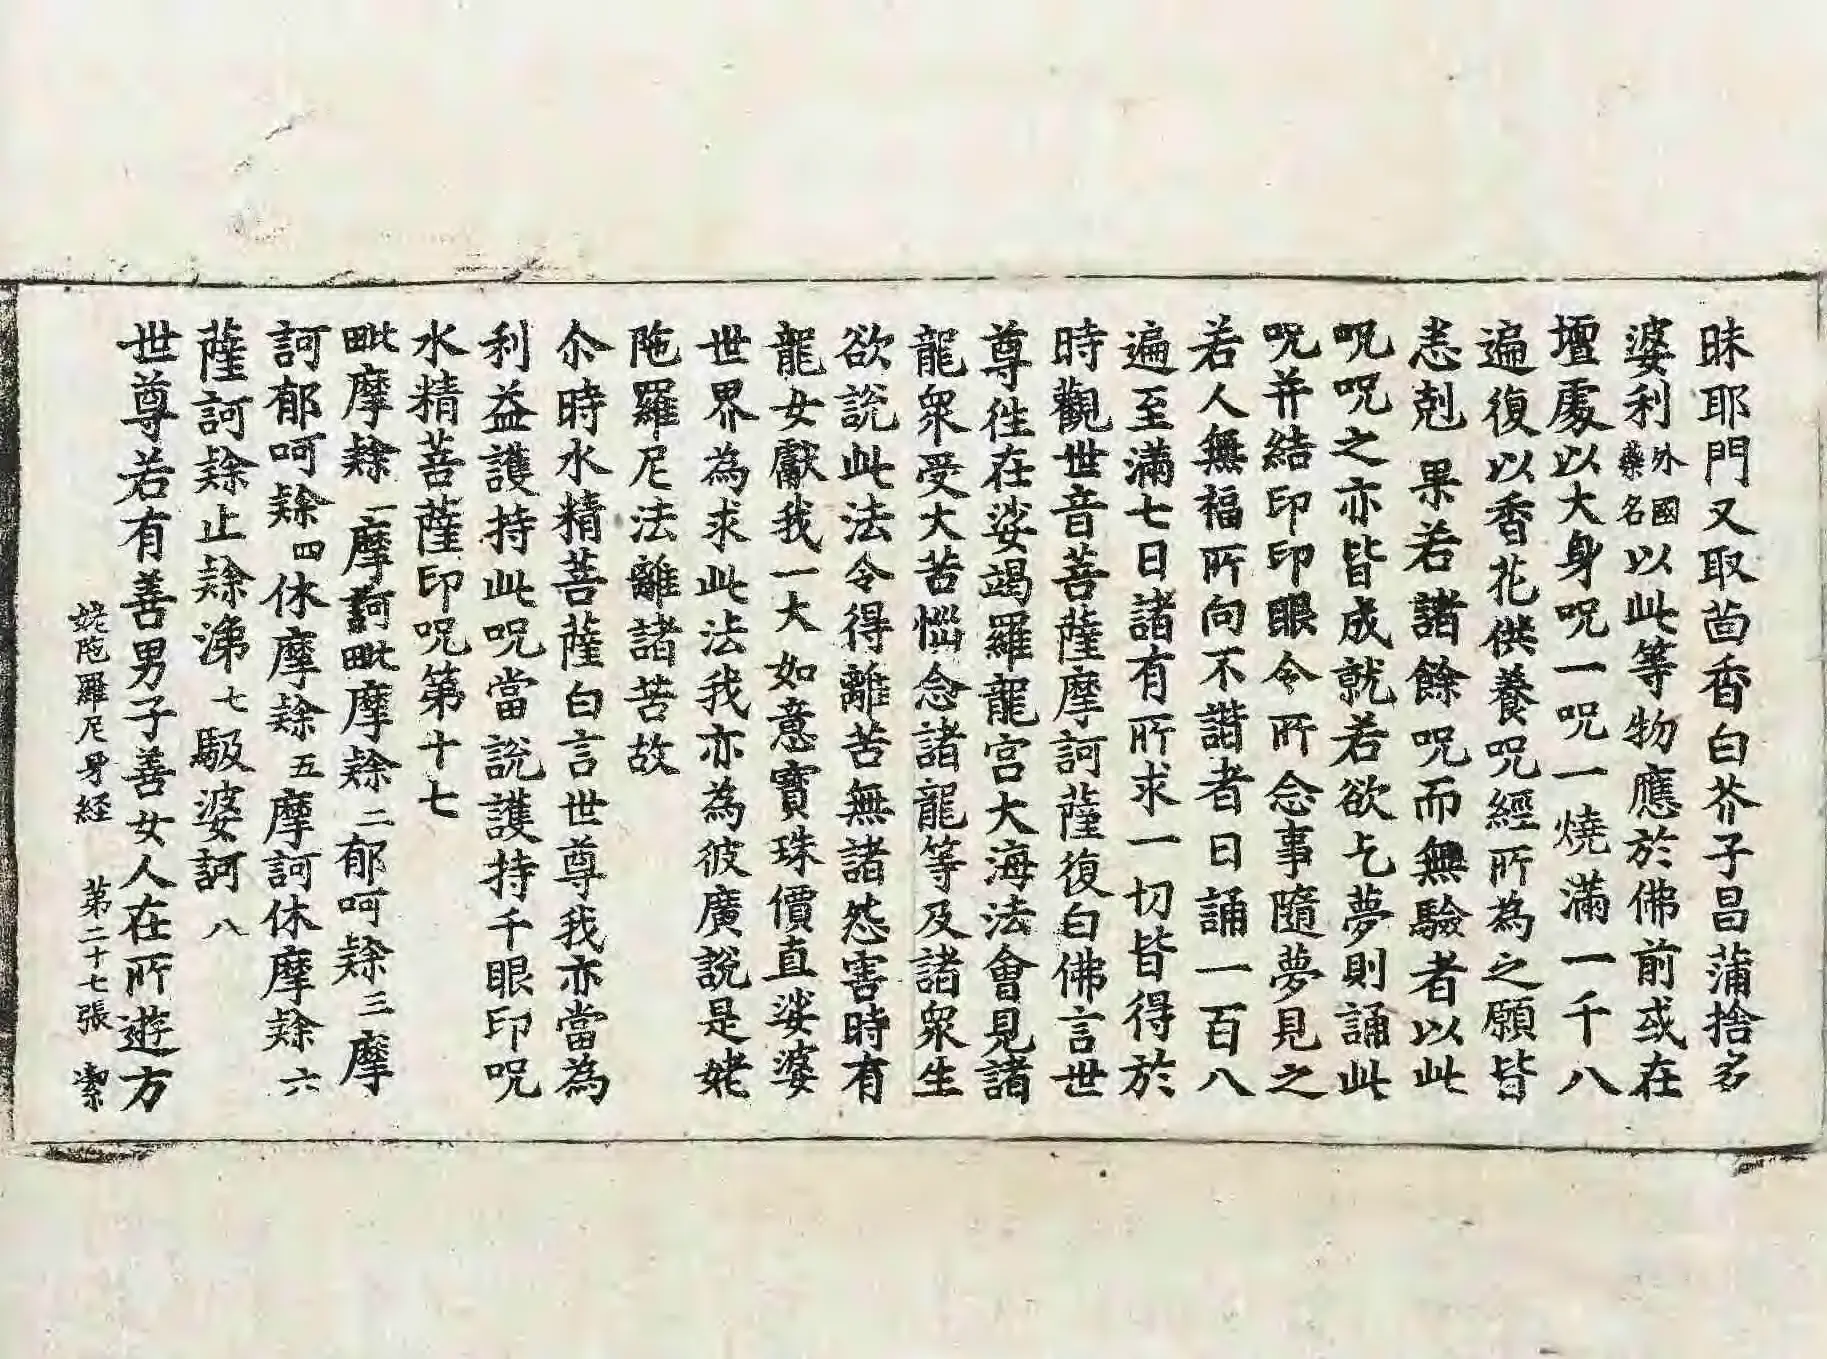 昧耶門又取茴香白芥子昌蒲捨多
婆利外國藥名以此等物應於佛前或在
壇處以大身呪一呪一燒滿一千八
遍復以香花供養呪經所為之願皆
恙剋 果若諸餘呪而無驗者以此
呪呪之亦皆成就若欲乞夢則誦此
呪并結印印眼令所念事隨夢見之
若人無福所向不諧者日誦一百八
遍至滿七日諸有所求一切皆得於
時觀世音菩薩摩訶薩復白佛言世
尊往在娑竭羅龍宮大海法會見諸
龍眾受大苦惱念諸龍等及諸眾生
欲說此法令得離苦無諸怨害時有
龍女獻我一大如意寶珠價直娑婆
世界為求此法我亦為彼廣說是姥
陁羅尼法離諸苦故
尒時水精菩薩白言世尊我亦當為
利益護持此呪當說護持千眼印呪
水精菩薩印呪第十七
毗摩㘑一摩訶毗摩㘑二郁呵㘑三摩
訶郁呵㘑四休摩㘑五摩訶休摩㘑六
薩訶㘑止㘑涕七馺婆訶八
世尊若有善男子善女人在所遊方
姥陁羅尼身經 第二十七張 潔